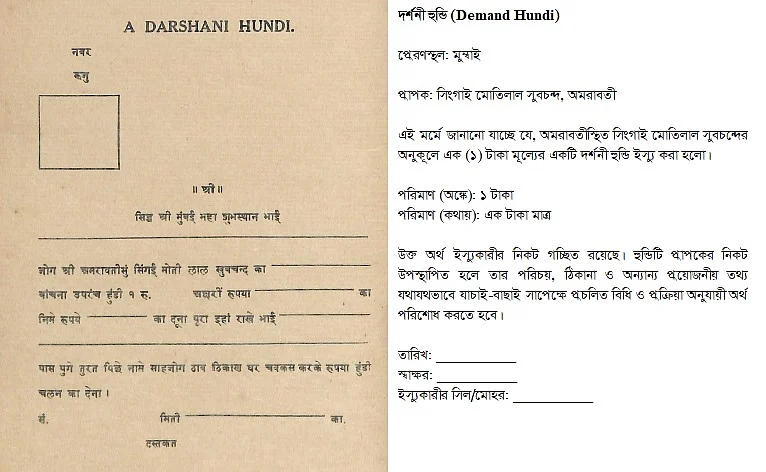 A DARSHANI HUNDI.
नंबर
रुजु
॥ श्री ॥
सिद्ध श्री मुंबई महा शुभस्थान भाई
जोग श्री अमरावतीसुं सिंगई मोती लाल खुबचन्द का
बांचना उपरंच हुंडी १ रु. अक्षरी रुपया का
निमे रुपये का दूना पूरा इहां राखे भाई
पास पुगे तुरत दिजे नामे साहजोग ठाव ठिकाण घर चवकस करके रुपया हुंडी
चलन का देना।
सं. मिती का.
दस्तकत
দর্শনী হুন্ডি (Demand Hundi)
প্রেরণস্থল: মুম্বাই
প্রাপক: সিংগাই মোতিলাল সুবচন্দ, অমরাবতী
এই মর্মে জানানো যাচ্ছে যে, অমরাবতীস্থিত সিংগাই মোতিলাল সুবচন্দের
অনুকূলে এক (১) টাকা মূল্যের একটি দর্শনী হুন্ডি ইস্যু করা হলো।
পরিমাণ (অঙ্কে): ১ টাকা
পরিমাণ (কথায়): এক টাকা মাত্র
উক্ত অর্থ ইস্যুকারীর নিকট গচ্ছিত রয়েছে। হুন্ডিটি প্রাপকের নিকট
উপস্থাপিত হলে তার পরিচয়, ঠিকানা ও অন্যান্য প্রয়োজনীয় তথ্য
যথাযথভাবে যাচাই-বাছাই সাপেক্ষে প্রচলিত বিধি ও প্রক্রিয়া অনুযায়ী অর্থ
পরিশোধ করতে হবে।
তারিখ:
স্বাক্ষর:
ইস্যুকারীর সিল/মোহর: